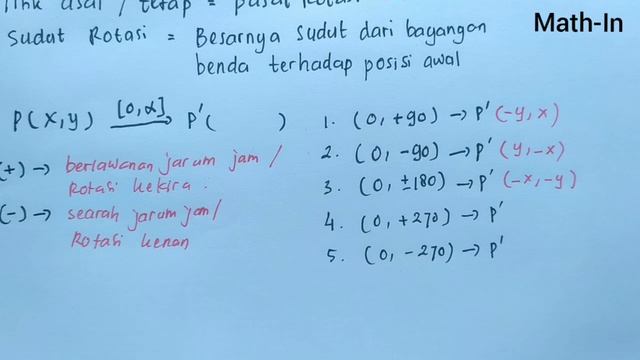 Titik asal / tetap = pusat Rotasi
Math-In
Sudut Rotasi = Besarnya sudut dari bayangan
benda terhadap posisi awal
P(x,y) [0,α] → P'( )
(+) → berlawanan jarum jam /
Rotasi kekira.
(-) → searah jarum jam/
Rotasi kenan
1. (0, +90) → P' (-y, x)
2. (0, -90) → P' (y, -x)
3. (0, ±180) → P' (-x, -y)
4. (0, +270) → P'
5. (0, -270) → P'